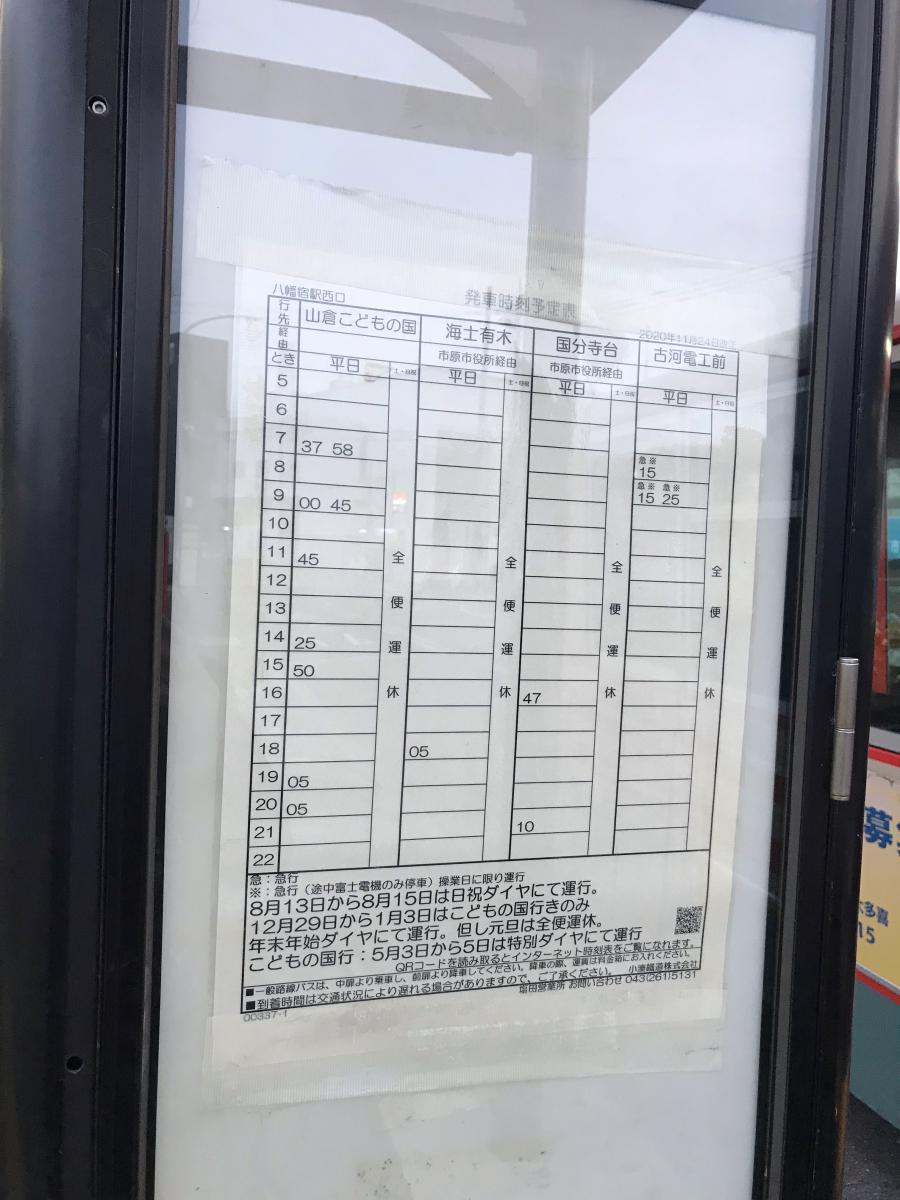 八幡宿駅西口
発車時刻予定表
2020年11月24日改正
行先 山倉こどもの国 海士有木 国分寺台 古河電工前
経由 市原市役所経由 市原市役所経由
とき 平日 土・日祝 平日 土・日祝 平日 土・日祝 平日 土・日祝
5
6
7 37 58
8 急※ 15
9 00 45 急※ 15 急※ 25
10
11 45
12
13
14 25
15 50
16 47
17
18 05
19 05
20 05
21 10
22
全便運休 全便運休 全便運休 全便運休
急:急行
※:急行(途中富士電機のみ停車)操業日に限り運行
8月13日から8月15日は日祝ダイヤにて運行。
12月29日から1月3日はこどもの国行きのみ
年末年始ダイヤにて運行。但し元旦は全便運休。
こどもの国行:5月3日から5日は特別ダイヤにて運行
QRコードを読み取るとインターネット時刻表をご覧になれます。
■一般路線バスは、中扉より乗車し、前扉より降車してください。降車の際、運賃は料金箱にお入れください。
■到着時間は交通状況により遅れる場合がありますので、ご了承ください。 小湊鐵道株式会社
塩田営業所 お問い合わせ 043(261)5131
00337-1
募
多喜
15